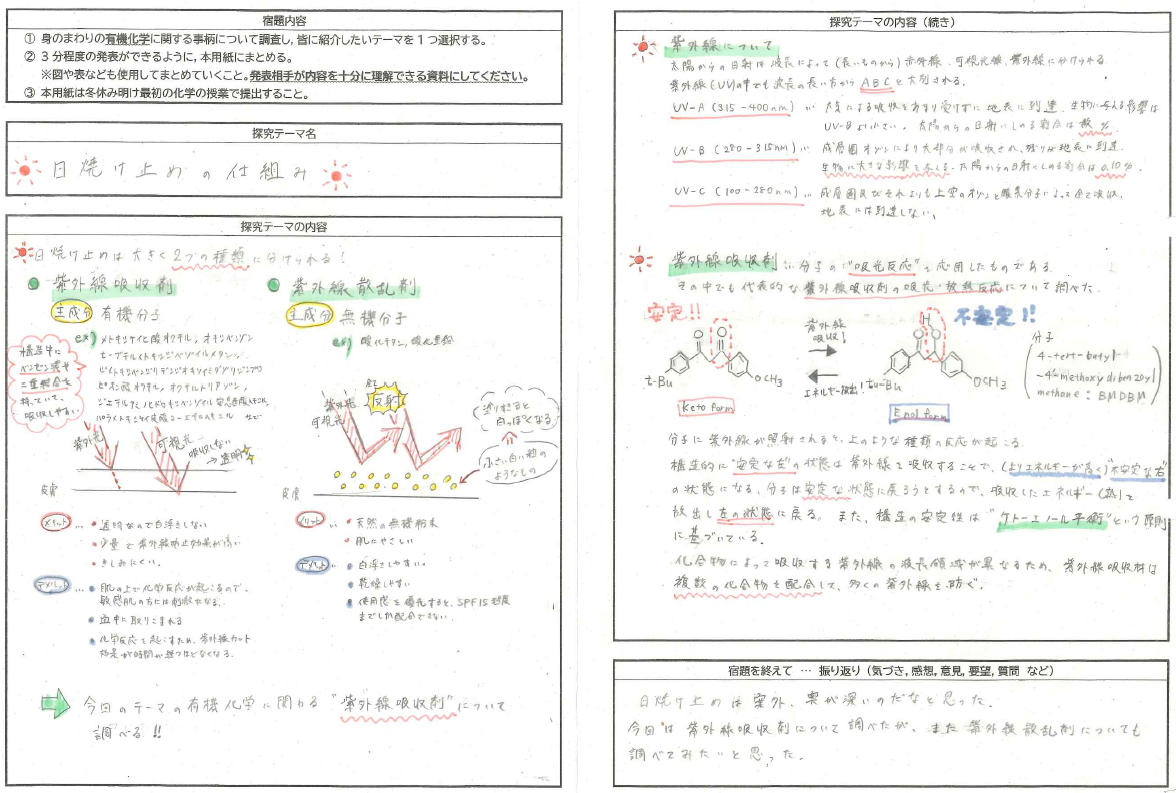 宿題内容
① 身のまわりの有機化学に関する事柄について調査し，皆に紹介したいテーマを１つ選択する。
② ３分程度の発表ができるように，本用紙にまとめる。
※図や表なども使用してまとめていくこと。発表相手が内容を十分に理解できる資料にしてください。
③ 本用紙は冬休み明け最初の化学の授業で提出すること。
探究テーマ名
日焼け止めの仕組み
探究テーマの内容
日焼け止めは大きく2つの種類に分けられる！
紫外線吸収剤
主成分 有機分子
ex) メトキシケイヒ酸オクチル，オキシベンゾン
t-ブチルメトキシジベンゾイルメタン，
オクチルトリアゾン，
構造中に
ベンゼン環や
二重結合を
持っていて、
吸収しやすい
紫外光
可視光
吸収しない
→透明
皮膚
メリット … 透明なので白浮きしない
少量で紫外線防止効果が高い
きしみにくい。
デメリット … 肌の上で化学反応が起こるので、
敏感肌の方には刺激になる。
血中に取りこまれる
化学反応を起こすため、紫外線カット
効果が時間が経つほどなくなる。
紫外線散乱剤
主成分 無機分子
ex) 酸化チタン，酸化亜鉛
紫外光
可視光
反射
塗りすぎると
白っぽくなる
小さい白い粉の
ようなもの
皮膚
メリット … 天然の無機粉末
肌にやさしい
デメリット … 白浮きしやすい。
乾燥しやすい
使用感を優先すると、SPF15程度
までしか配合できない。
今回のテーマの有機化学に関わる "紫外線吸収剤" について
調べる !!
探究テーマの内容（続き）
紫外線について
太陽からの日射は波長によって(長いものから)赤外線、可視光線、紫外線に分けられる。
紫外線(UV)の中でも波長の長い方から ABC と大別される。
UV-A (315-400nm) … 大気による吸収をあまり受けずに地表に到達。生物に与える影響は
UV-Bより小さい。太陽からの日射にしめる割合は数%。
UV-B (280-315nm) … 成層圏オゾンにより大部分が吸収され、残りが地表に到達。
生物に大きな影響を与える。太陽からの日射にしめる割合は0.10%。
UV-C (100-280nm) … 成層圏及びそれよりも上空のオゾンと酸素分子によって全て吸収。
地表には到達しない。
紫外線吸収剤 … 分子の"吸光反応"を応用したものである。
その中でも代表的な紫外線吸収剤の吸光・放熱反応について調べた。
安定!!
紫外線
吸収！
不安定!!
分子
4-tert-butyl-
-4'-methoxydibenzoyl
methane : BMDBM
O O
H
t-Bu
OCH3
エネルギー放出！
tu-Bu
OCH3
Keto form
Enol form
分子に紫外線が照射されると、上のような種類の反応が起こる。
構造的に"安定な左"の状態は紫外線を吸収することで、(よりエネルギーが高く)"不安定な右"
の状態になる。分子は安定な状態に戻ろうとするので、吸収したエネルギー(熱)を
放出し左の状態に戻る。また、構造の安定性は "ケトーエノール平衡"という原則
に基づいている。
化合物によって吸収する紫外線の波長領域が異なるため、紫外線吸収材は
複数の化合物を配合して、多くの紫外線を防ぐ。
宿題を終えて … 振り返り（気づき，感想，意見，要望，質問 など）
日焼け止めは案外、奥が深いのだなと思った。
今回は紫外線吸収剤について調べたが、また紫外線散乱剤についても
調べてみたいと思った。